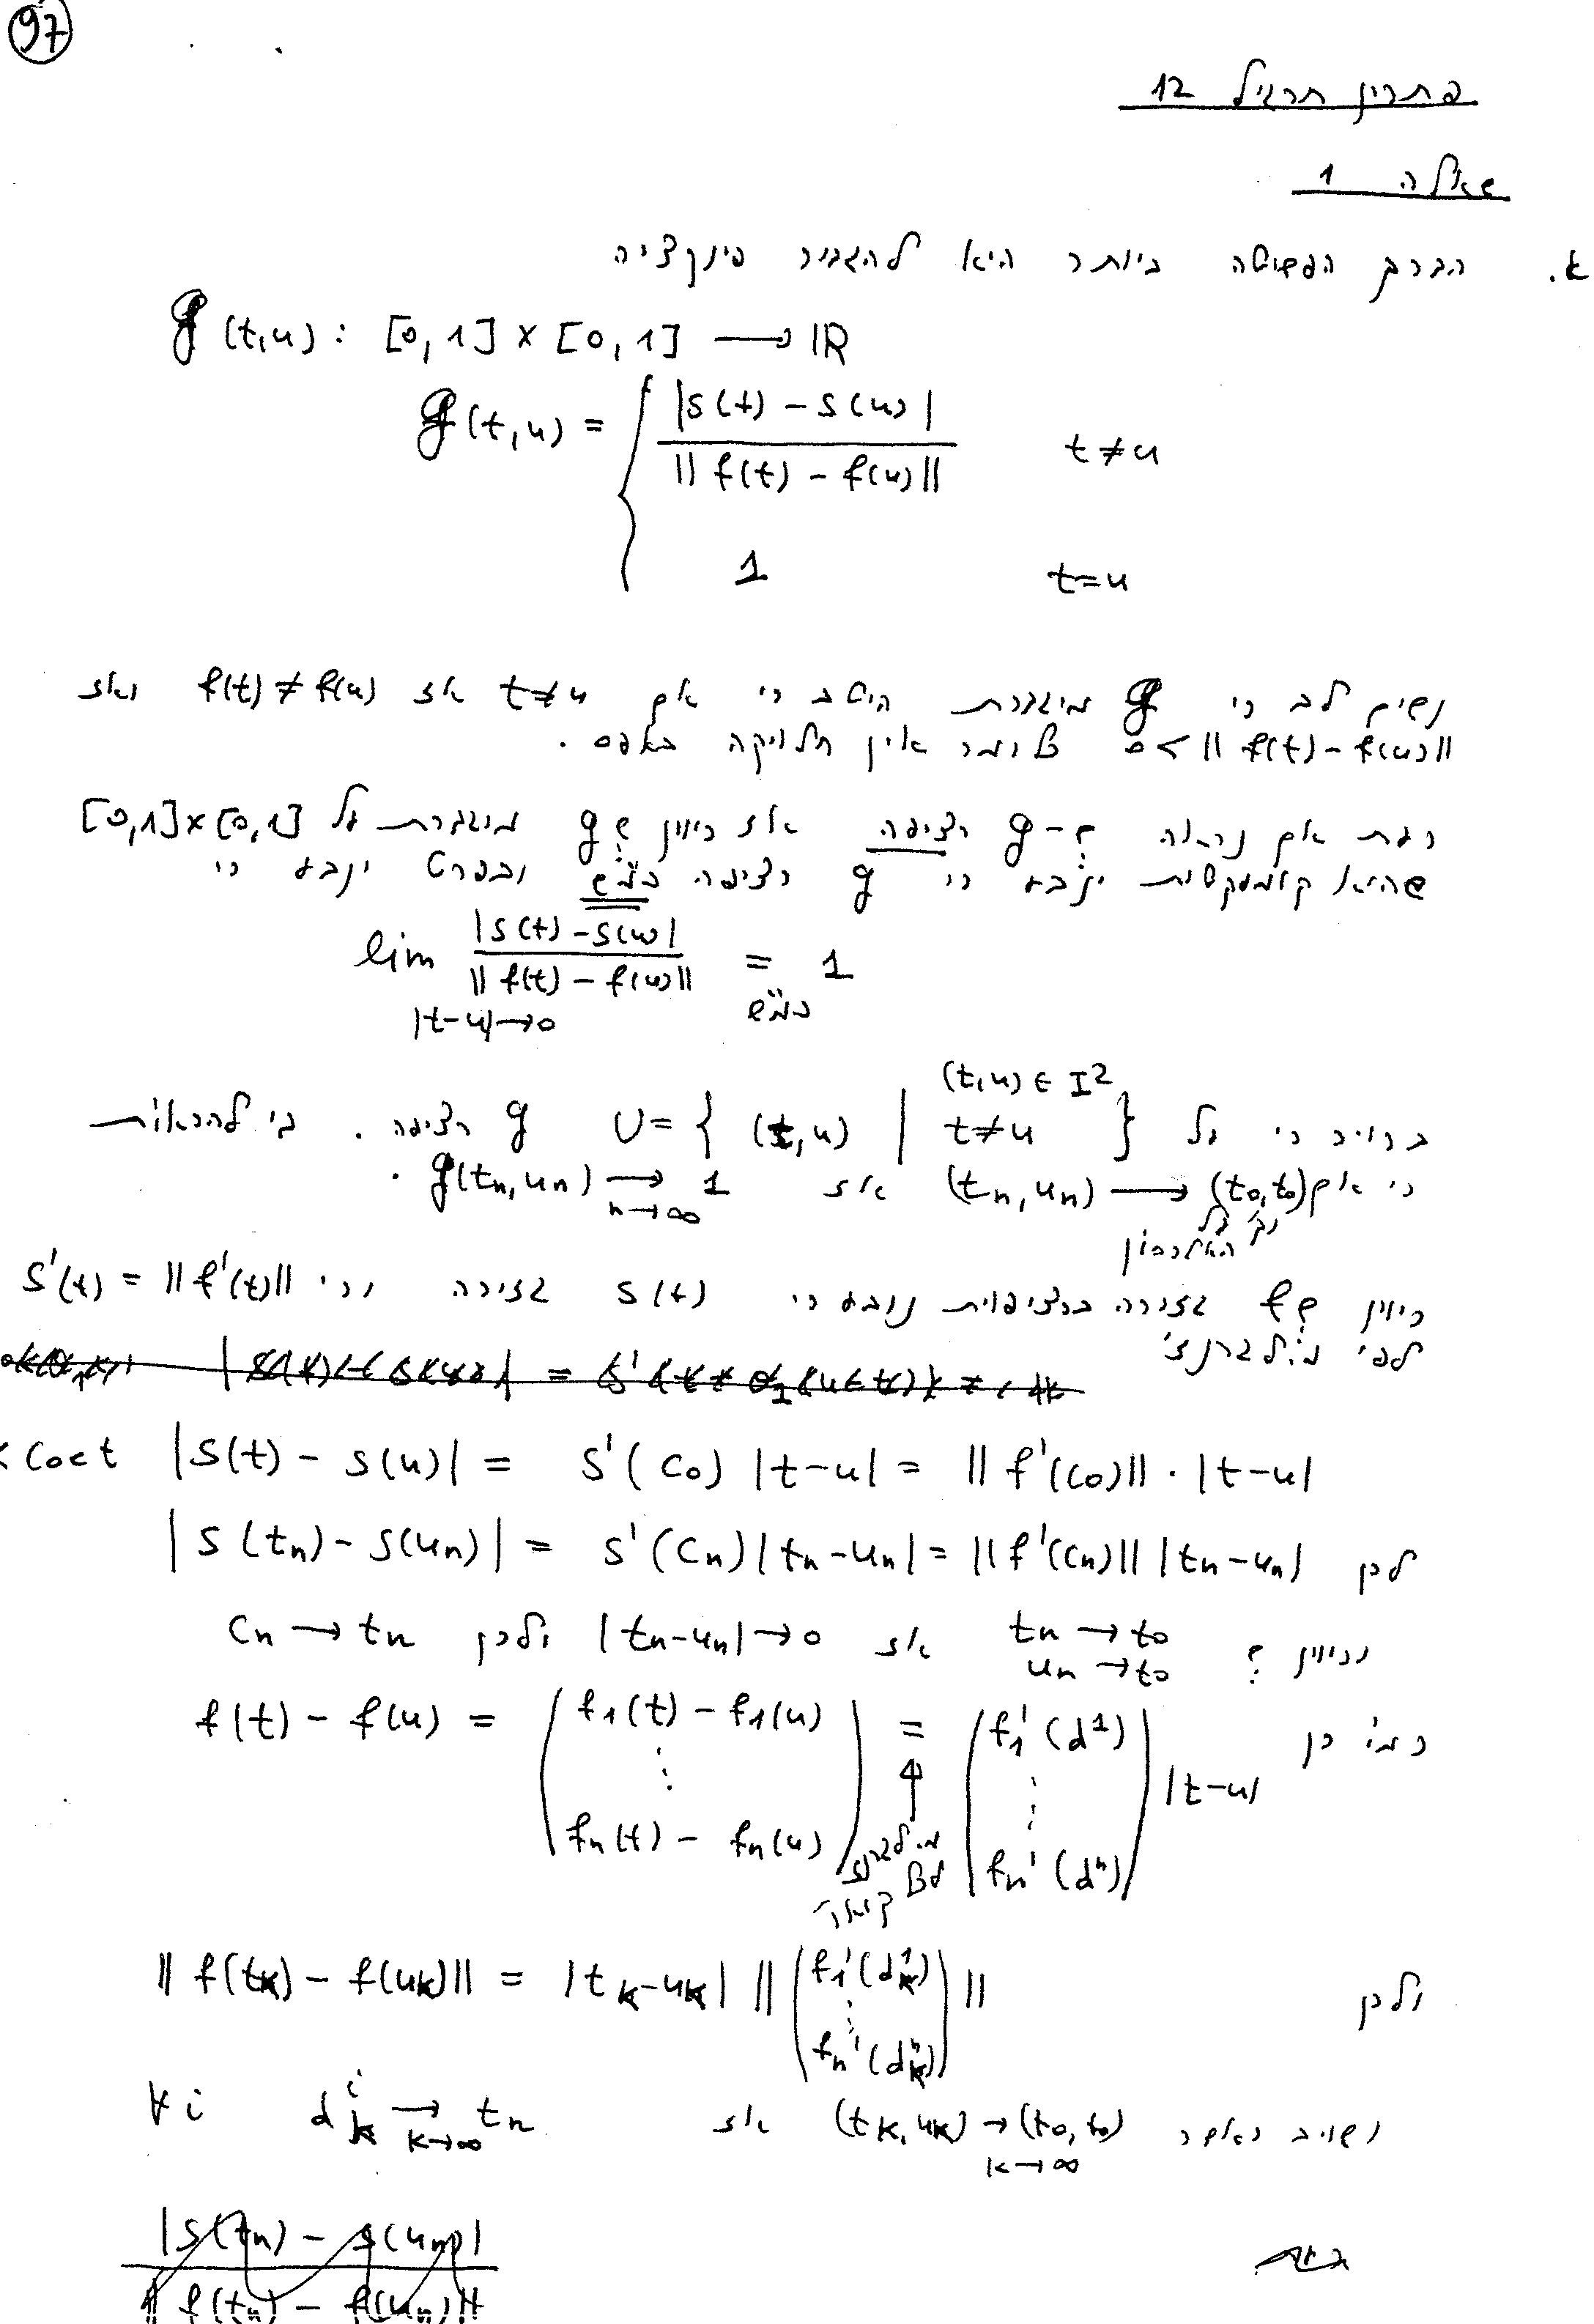 97
פתרון תרגיל 12
שאלה 1
א. הדרך הפשוטה ביותר היא להגדיר פונקציה
g(t,u): [0,1] x [0,1] → IR
g(t,u) = { |s(t) - s(u)| / || f(t) - f(u) || t≠u
1 t=u
נשים לב כי g מוגדרת היטב כי אם t≠u אז f(t)≠f(u) ואז
0 < || f(t) - f(u) || כלומר אין חלוקה באפס.
כעת אם נראה ש-g רציפה אז כיוון שg מוגדרת על [0,1]x[0,1]
שהיא קומפקטית ינבע כי g רציפה במ"ש ובפרט ינבע כי
lim |t-u|→0 |s(t) - s(u)| / || f(t) - f(u) || = 1 במ"ש
ברור כי על U = { (t,u) | (t,u) ∈ I² t≠u } g רציפה. די להראות
כי אם (tn,un) → (t0,t0) אז g(tn,un) → 1 n→∞.
נק' על האלכסון
כיוון שf גזירה ברציפות נובע כי s(t) גזירה וכי s'(t) = || f'(t) ||
לפי מ. לגרנז'
|s(t) - s(u)| = s'(c0) |t-u| = || f'(c0) || · |t-u|
לכן |s(tn) - s(un)| = s'(cn) |tn-un| = || f'(cn) || |tn-un|
וכיוון ש tn → t0 un → t0 אז |tn-un| → 0 ולכן cn → tn
כמו כן f(t) - f(u) = ( f1(t) - f1(u) ⋮ fn(t) - fn(u) ) = ( f1'(d¹) ⋮ fn'(dⁿ) ) |t-u|
לכל
ולכן || f(tk) - f(uk) || = |tk-uk| || ( f1'(d¹k) ⋮ fn'(dⁿk) ) ||
ושוב כאשר (tk,uk) → (t0,t0) k→∞ אז dⁱk → tn k→∞ ∀i
|s(tn) - s(un)| / || f(tn) - f(un) ||